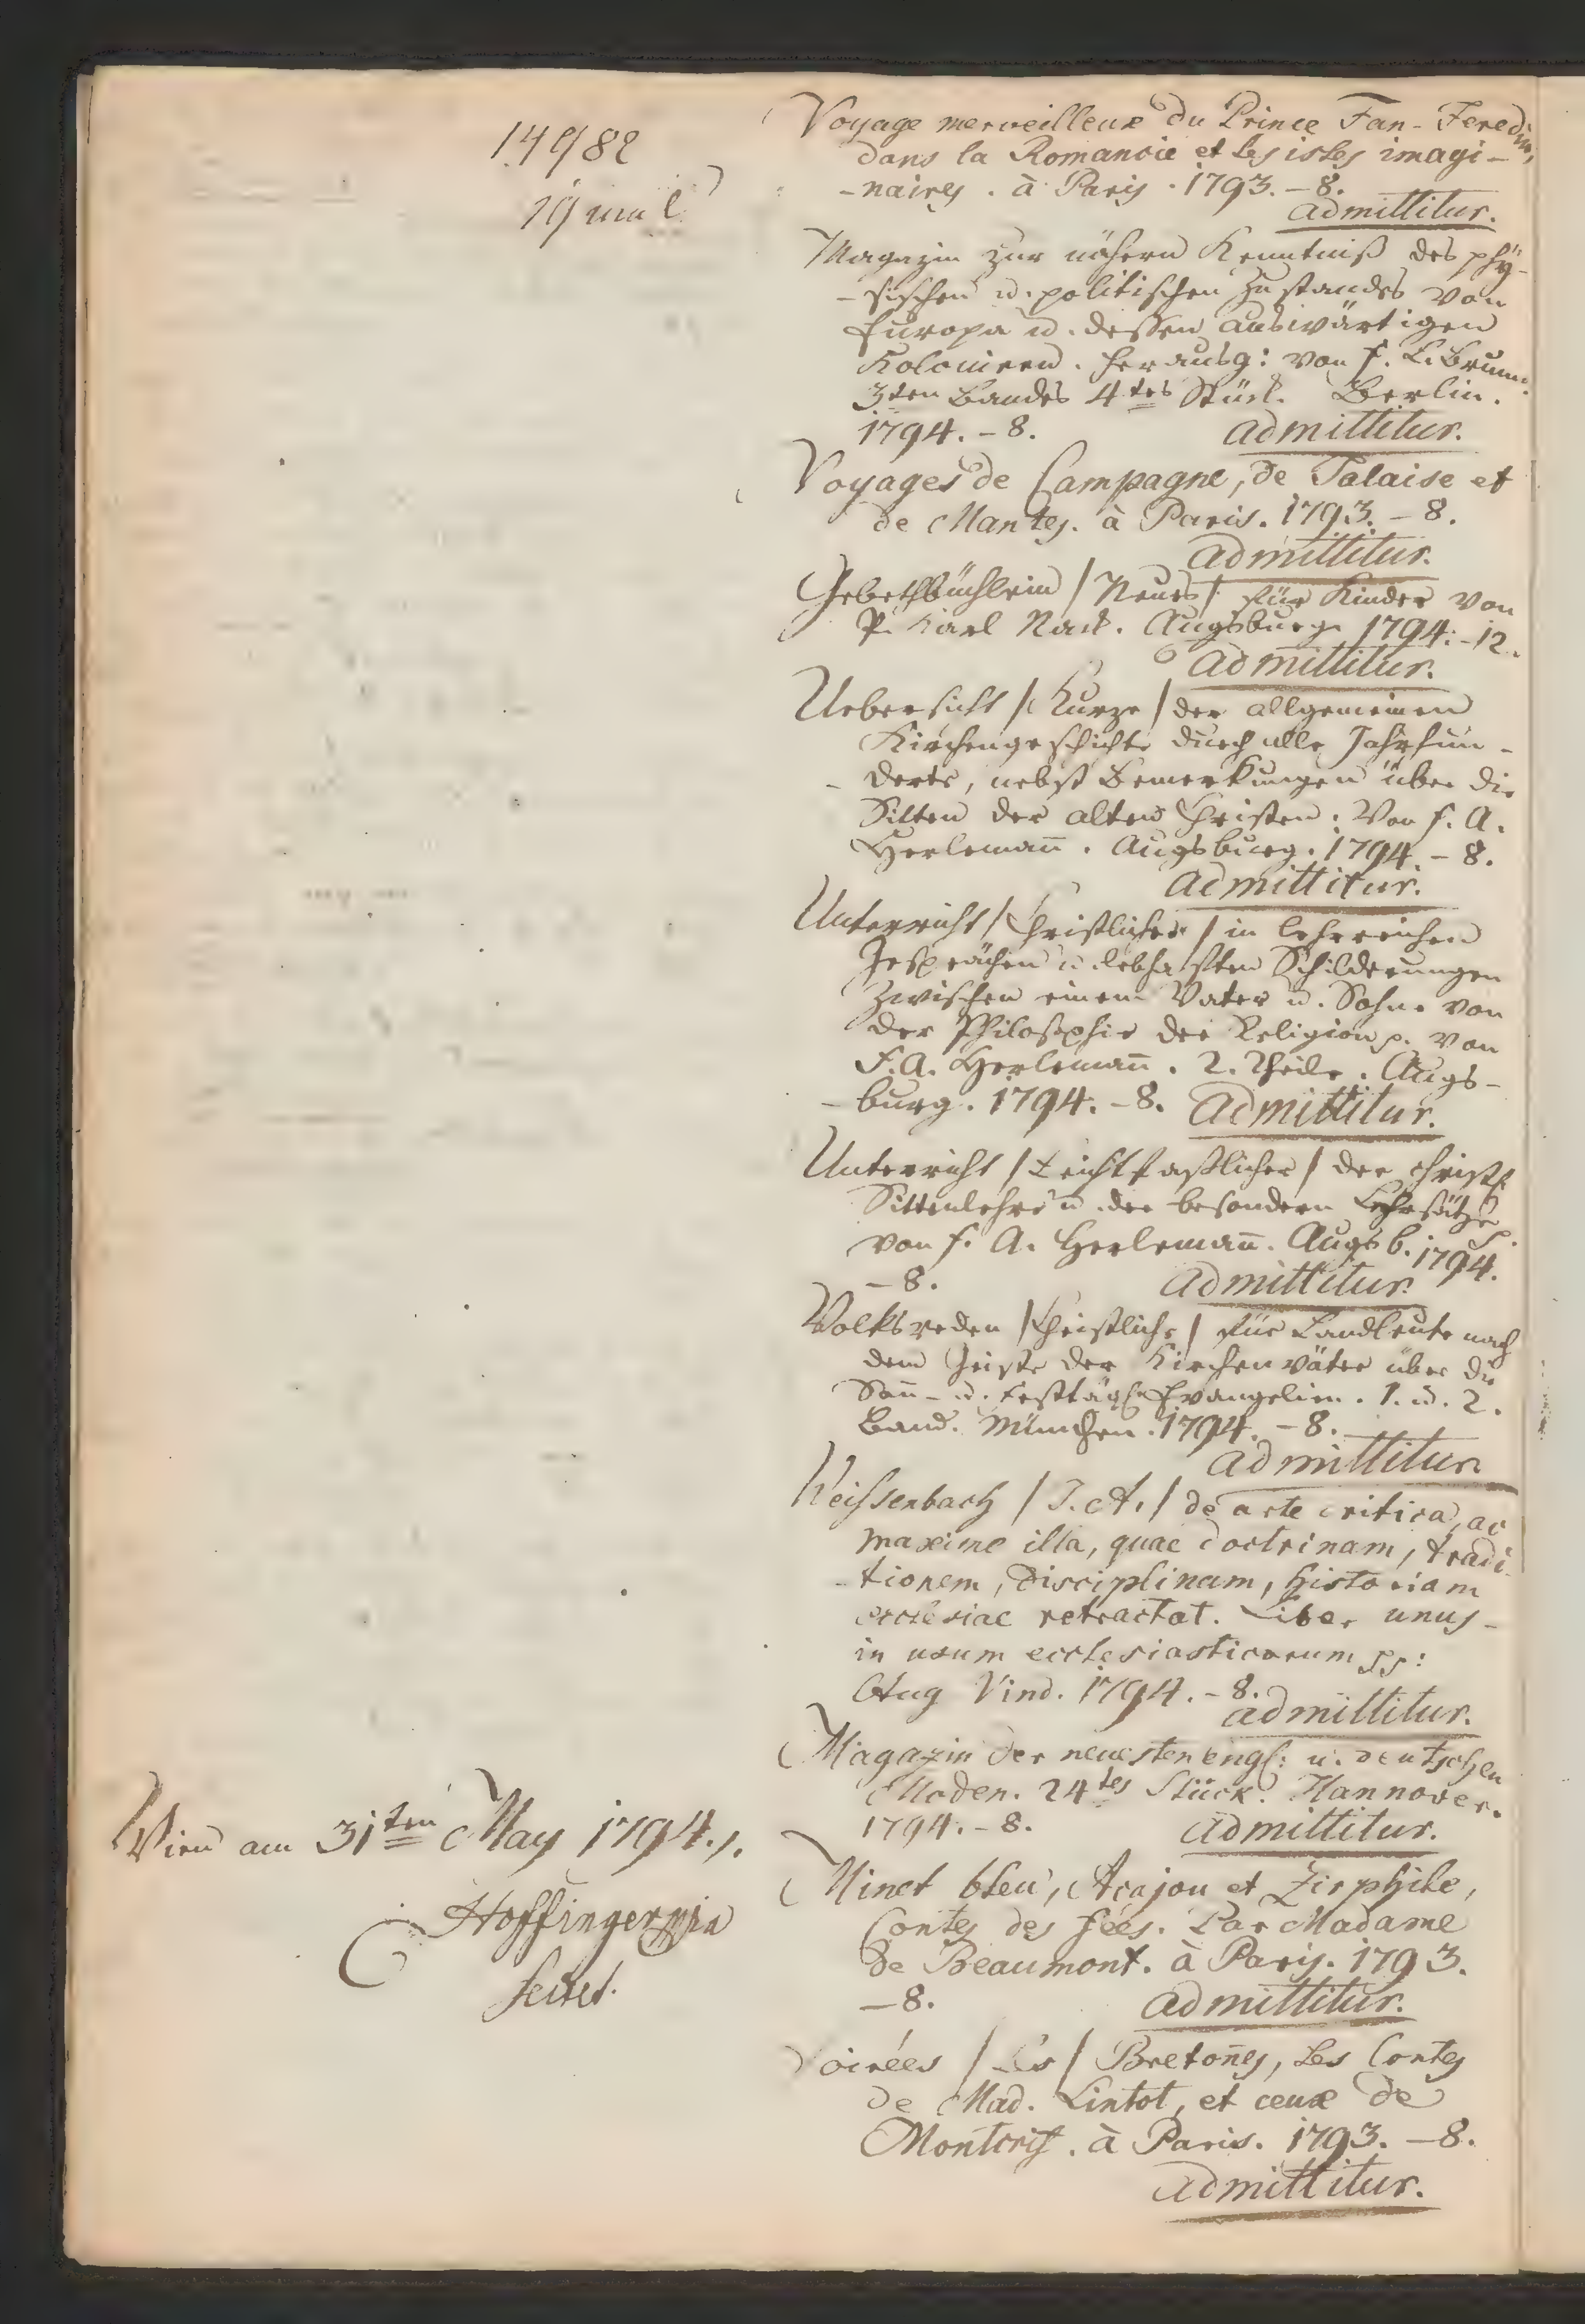 14982
Voyage merveilleux du Prince Fan-Feredin,
dans la Romancie et les isles imagi-
-naires. à Paris. 1793. - 8.
admittitur.
Magazin zur nähern Kenntniß des phÿ-
-sischen u. politischen Zustandes von
Europa u. dessen auswärtigen
Kolonieen. herausg: von F. L. Brunn.
3ten Bandes 4tes Stück. Berlin.
1794. - 8. admittitur.
Voyages de Campagne, de Falaise et
de Mantes. à Paris. 1793. - 8.
admittitur.
Gebethbüchlein / Neues / für Kinder von
P. Karl Nack. Augsburg 1794. - 12.
admittitur.
Uebersicht / Kurze / der allgemeinen
Kirchengeschichte durch alle Jahrhun-
- derte, nebst Bemerkungen über die
Sitten der alten Christen. Von F. A.
Herlemañ. Augsburg. 1794. - 8.
admittitur.
Unterricht / Christlicher / in lehrreichen
Gesprächen u. lebhaften Schilderungen
zwischen einem Vater u. Sohne von
der Philosophie der Religion p. von
F. A. Herlemañ. 2. Theile. Augs-
- burg. 1794. - 8. admittitur.
Unterricht / Leichtfaßlicher / der christl
Sittenlehre u. der besondern Lehrsätze p.
von F. A. Herlemañ. Augsb. 1794.
- 8. admittitur.
Volksreden / Christliche / für Landleute nach
dem Geiste der Kirchenväter über die
Soñ- u. festtägl. Evangelien. 1. u. 2.
Band. München. 1794. - 8.
admittitur
Weissenbach / J. A. / de arte critica, ac
maxime illa, quae doctrinam, tradi-
- tionem, disciplinam, historiam
ecclesiae retractat. Liber unus -
in usum ecclesiasticorum pp:
Aug Vind. 1794. - 8.
admittitur.
Magazin der neuesten engl: u. deutschen
Moden. 24tes Stück. Hannover.
1794. - 8. admittitur.
Minet bleu, Acajou et Zirphile,
Contes des fées. Par Madame
de Beaumont. à Paris. 1793.
- 8. admittitur.
Soirées / Les / Bretoñes, Les Contes
de Mad. Lintot, et ceux de
Montcrif. à Paris. 1793. - 8.
admittitur.
Wien am 31ten May 1794.
Hoffinger